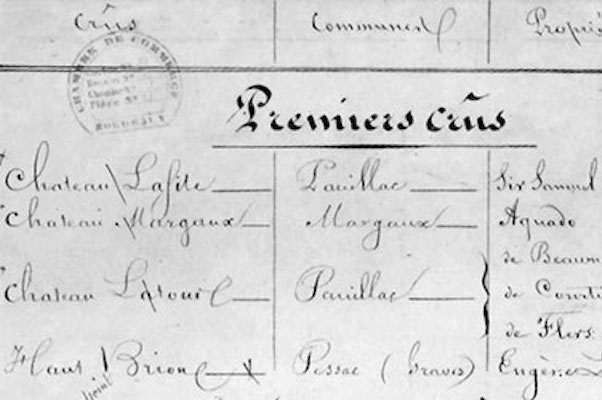 Crûs Communes Propri
CHAMBRE DE COMMERCE
BORDEAUX
Premiers crûs
Chateau Lafite Pauillac Sir Samuel
Chateau Margaux Margaux Aguado
de Beaum
Chateau Latour Pauillac de Courti
de Flers
Haut Brion Pessac (Graves) Eugène L